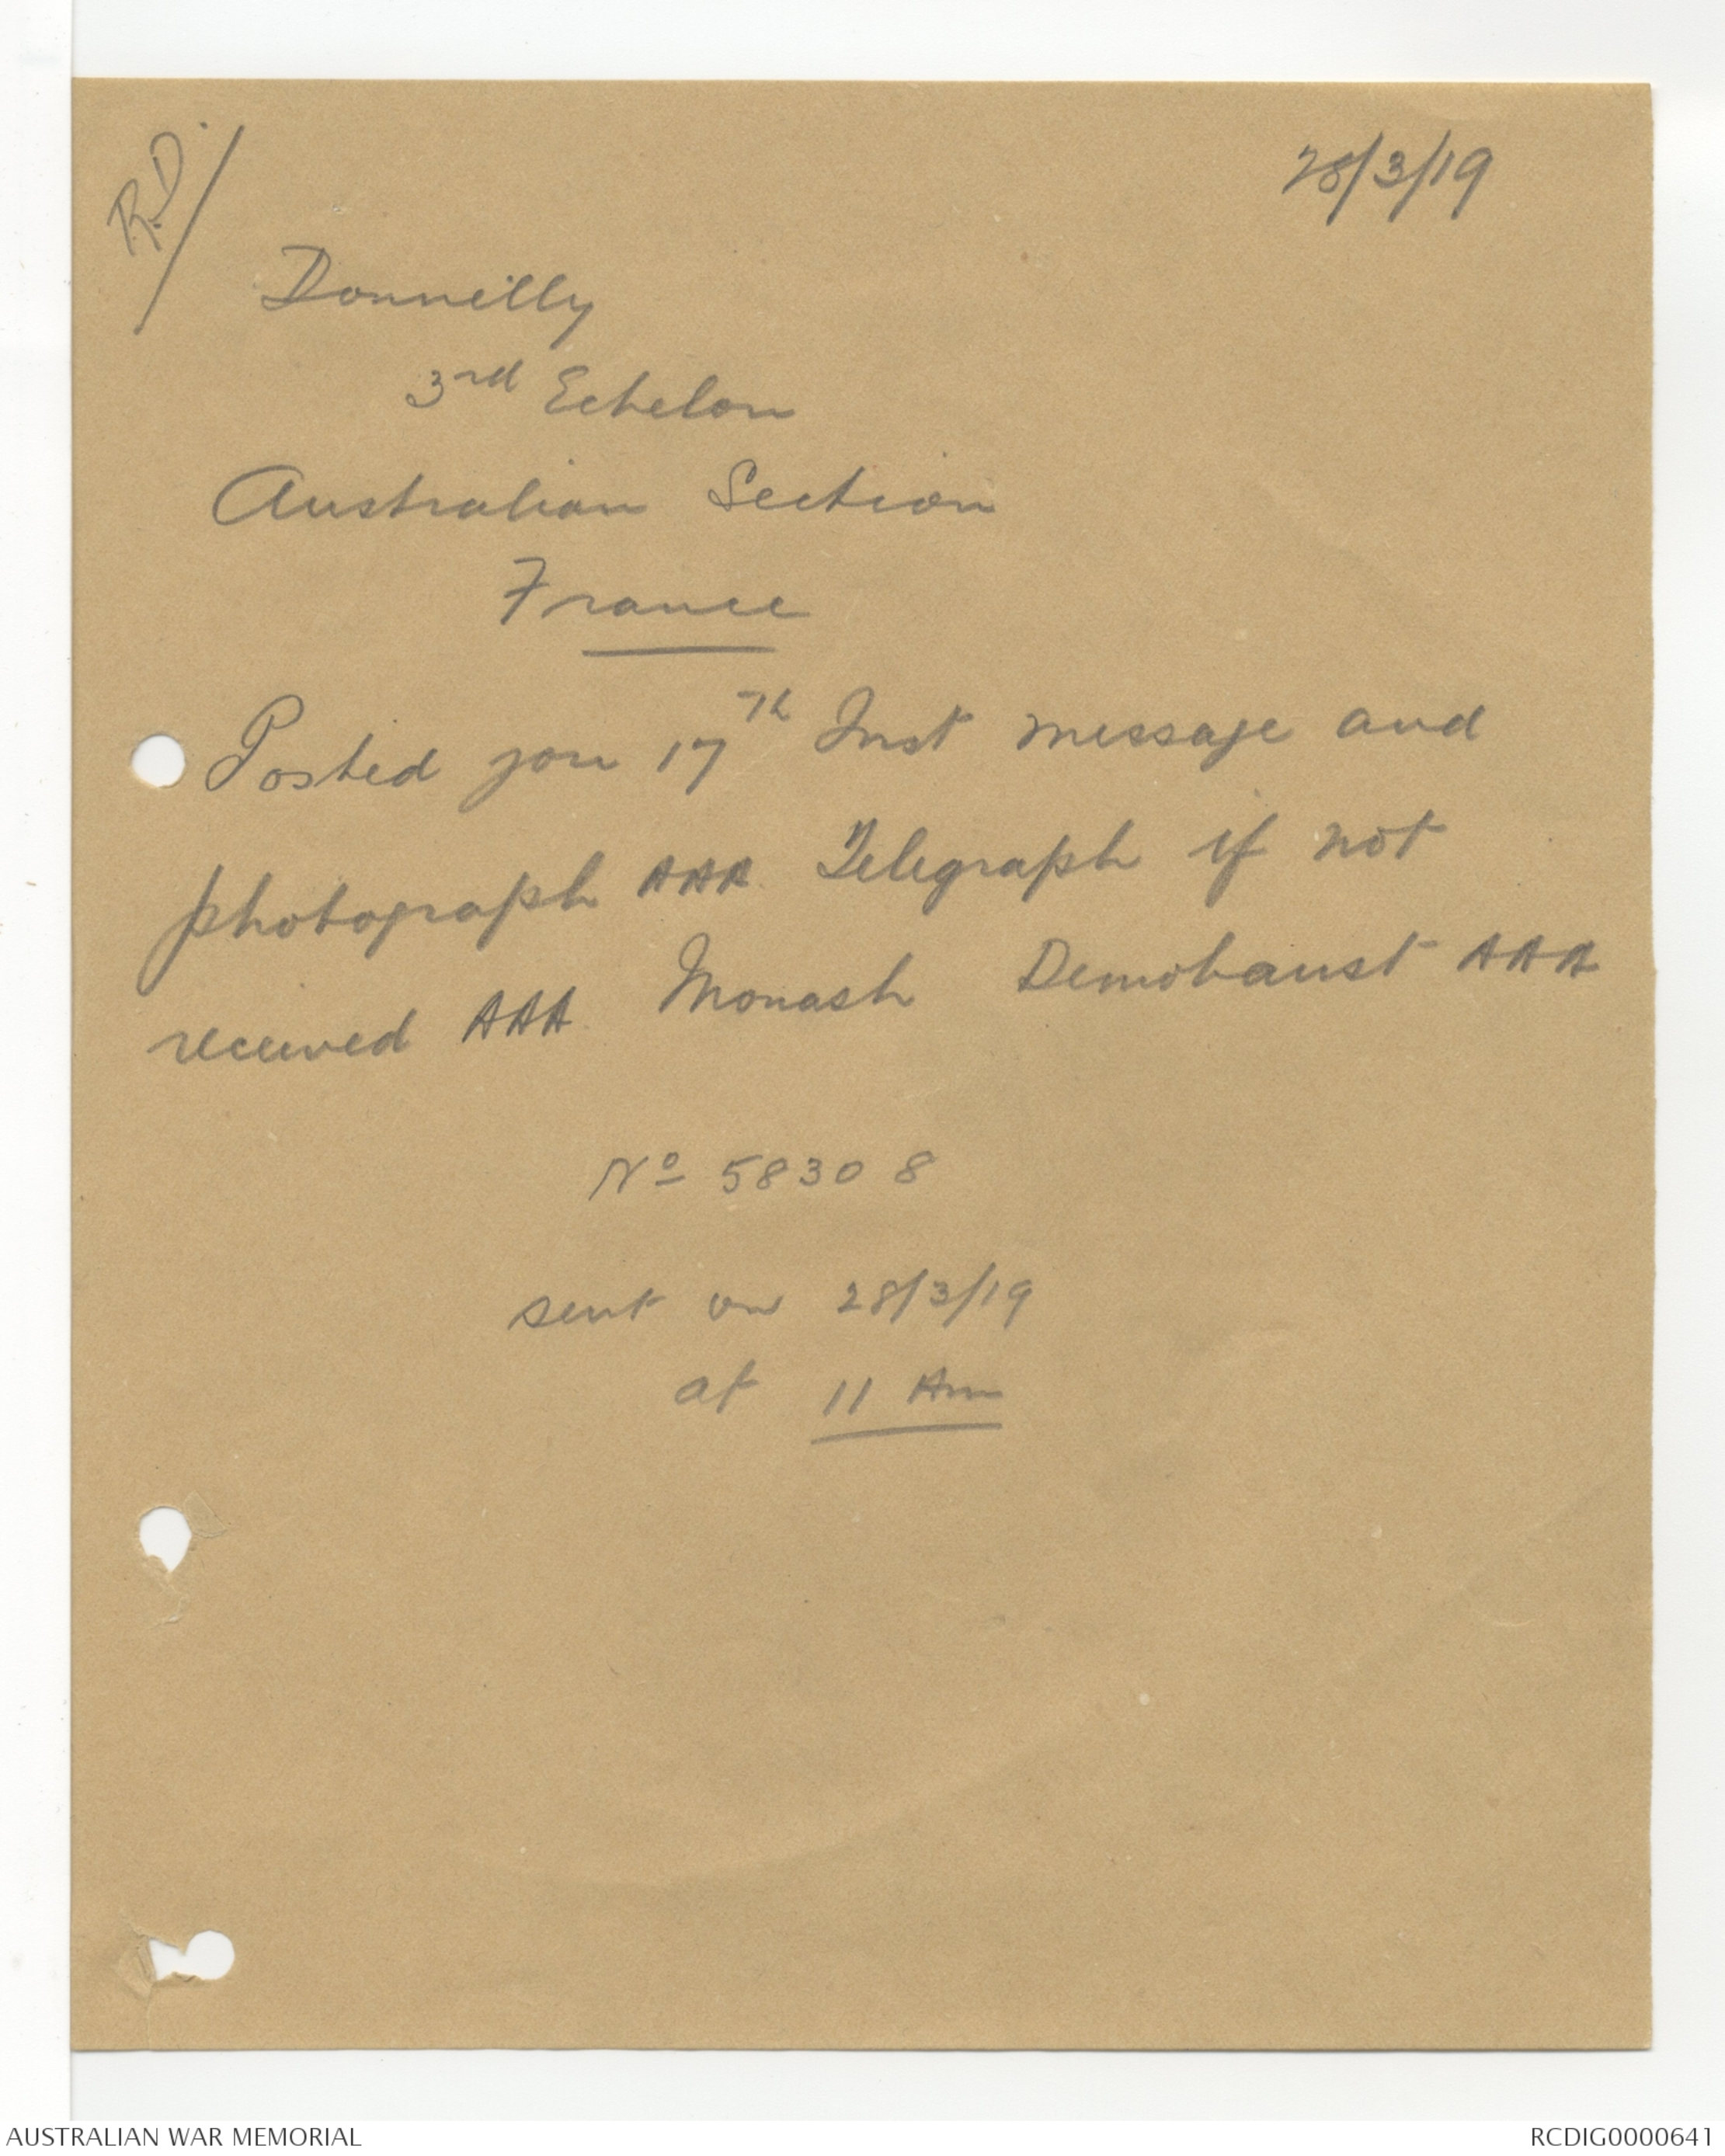 R.D.
28/3/19
Donnelly
3rd Echelon
Australian Section
France
Posted you 17th Inst message and
photograph AAA Telegraph if not
received AAA Monash Demobaust AAA
No 58308
sent on 28/3/19
at 11 Am
AUSTRALIAN WAR MEMORIAL
RCDIG0000641